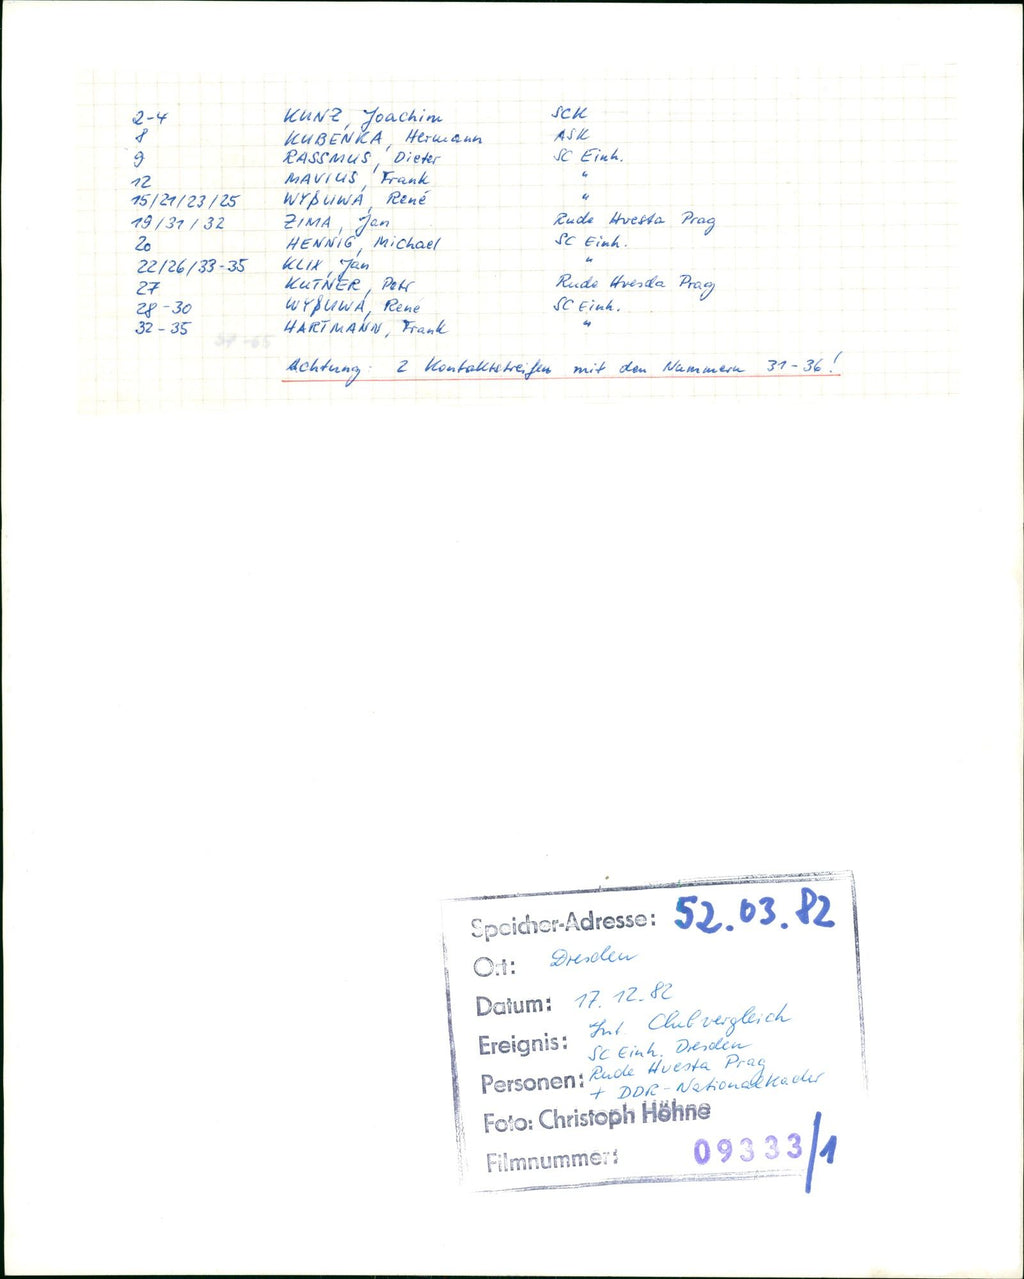 2-4 KUNZ, Joachim SCK
8 KUBENKA, Hermann ASK
9 RASSMUS, Dieter SC Einh.
12 MAVIUS, Frank "
15/21/23/25 WYßUWA, René "
19/31/32 ZIMA, Jan Rude Hvesta Prag
20 HENNIG, Michael SC Einh.
22/26/33-35 KLIX, Jan "
27 KUTNER, Petr Rude Hvesda Prag
28-30 WYßUWA, René SC Einh.
32-35 HARTMANN, Frank "
Achtung: 2 Kontaktstreifen mit den Nummern 31-36!
Speicher-Adresse: 52.03.82
Ort: Dresden
Datum: 17.12.82
Ereignis: Int. Clubvergleich
SC Einh. Dresden
Personen: Rude Hvesta Prag
+ DDR-Nationalkader
Foto: Christoph Höhne
Filmnummer: 09333/1